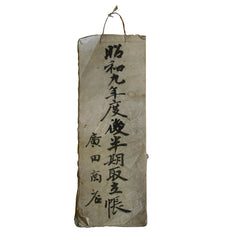 昭和九年度後半期取立帳
廣田商店